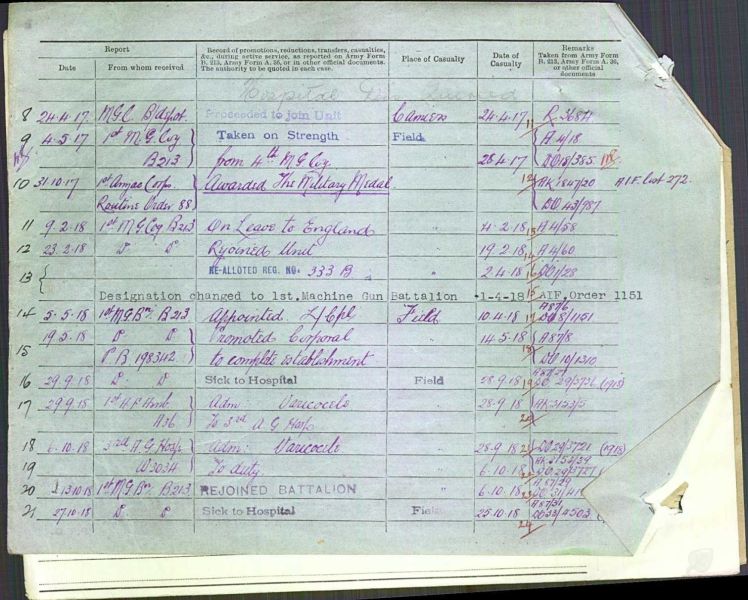 Report
Record of promotions, reductions, transfers, casualties, &c., during active service, as reported on Army Form B. 213, Army Form A. 36, or in other official documents. The authority to be quoted in each case.
Place of Casualty
Date of Casualty
Remarks Taken from Army Form B. 213, Army Form A. 36, or other official documents
Date From whom received
Hospital
8 24.4.17 M.G.C. B/depot. Proceeded to join Unit Camiers 24.4.17
9 4.5.17 1st M.G. Coy Taken on Strength Field A 4/18
B213 from 4th M G Coy 28.4.17 DO 18/385
10 31.10.17 1st Anzac Corps Awarded The Military Medal AK 1847/20 A.I.F. List 272.
Routine Order 88 DO 43/787
11 9.2.18 1st M G Coy B213 On Leave to England " 4.2.18 A 4/58
12 23.2.18 D° D° Rejoined Unit " 19.2.18 A 4/60
13 RE-ALLOTED REG. No. 333 B " 2.4.18 DO 1/28
Designation changed to 1st. Machine Gun Battalion 1-4-18 AIF. Order 1151
14 5.5.18 1st M G Bn. B213 Appointed L/Cpl Field 10.4.18 A87/6
DO 8/1151
19.5.18 D° D° Promoted Corporal 14.5.18 A87/8
15 P.B 198342 to complete establishment DO 10/1310
16 29.9.18 D° D° Sick to Hospital Field 28.9.18 DO 29/3726 (1918)
17 29.9.18 1st A F Amb. Adm: Varicocele 28.9.18
A36 To 3rd A G Hosp
18 6.10.18 3rd A G Hosp Adm: Varicocele 28.9.18 DO 29/3721 (1918)
19 W3034 To duty 6.10.18
20 13.10.18 1st M G Bn. B213 REJOINED BATTALION 6.10.18 A87/29
21 27.10.18 D° D° Sick to Hospital Field 25.10.18 A87/31
DO 33/4503